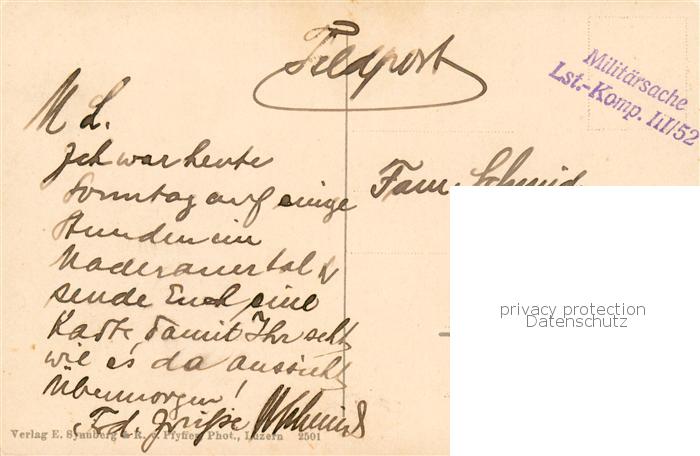 Feldpost
Militärsache
Lst.-Komp. III/52
M L.
Ich war heute
Sonntag auf einige
Stunden im
Maderanertal &
sende Euch eine
Karte, damit Ihr seht
wie es da aussieht
Übermorgen!
Frd. Grüße WSchmid
Fam. Schmid
privacy protection
Datenschutz
Verlag E. Synnberg & R. v. Pfyffer, Phot., Luzern 2501